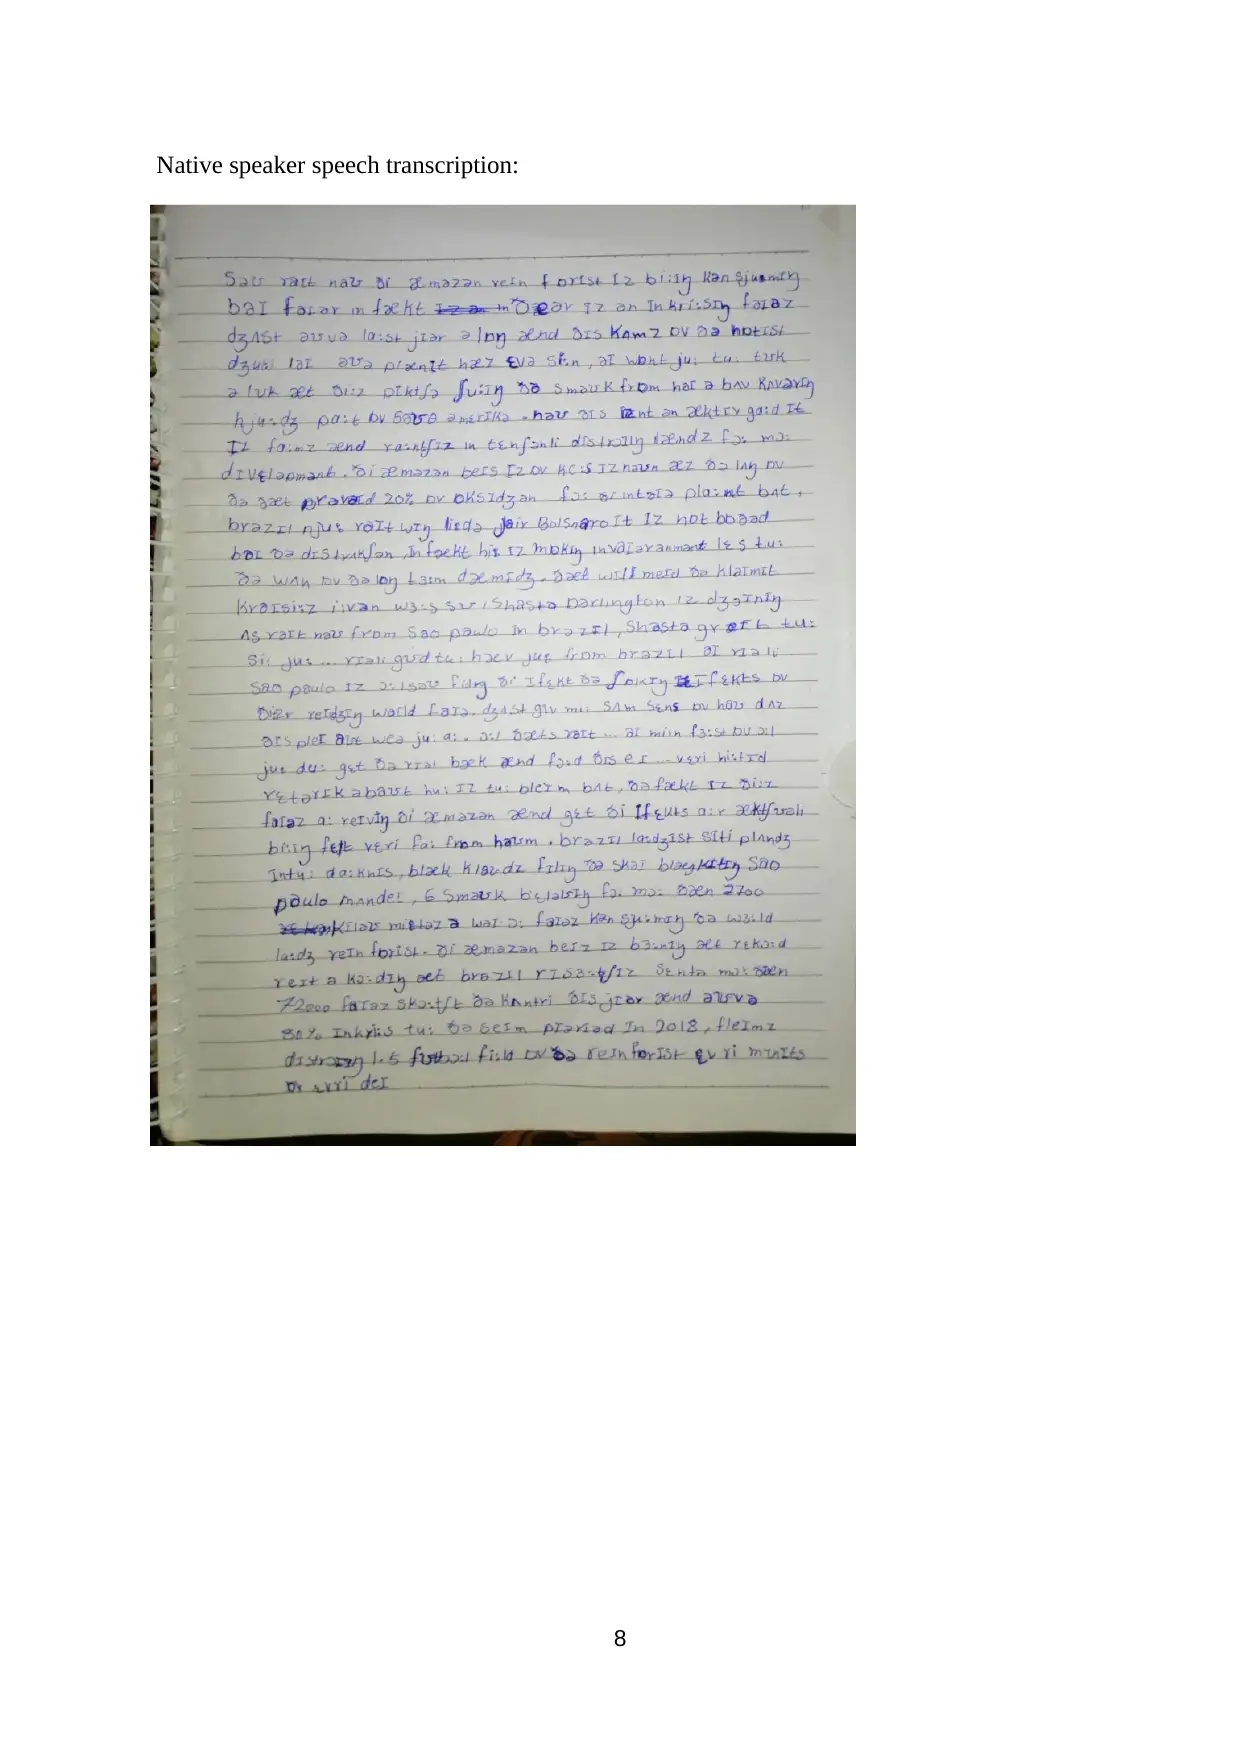 Native speaker speech transcription:
səʊ raɪt naʊ ði æməzən reɪn forɪst ɪz biːɪŋ kənsjuːmɪŋ
baɪ faɪər ɪn fækt ðeər ɪz ən ɪnkriːsɪŋ faɪəz
dʒʌst əʊvə laːst jɪər əlɒŋ ænd ðɪs kʌmz ɒv ðə hɒtɪst
dʒuːlaɪ aʊə plænɪt hæz ɛvə siːn, aɪ wɒnt juː tuː tʊk
ə lʊk æt ðiːz pɪktʃə ʃuːɪŋ ðə sməʊk from haɪ əbʌv kʌvərɪŋ
hjuːdʒ paːt ɒv səʊθ əmɛrɪkə. haʊ ðɪs
ɪt faːmz ænd raːntʃɪz ɪn tɛnʃənli dɪstrɔɪɪŋ lændz fɔː mɔː
dɪvɛləpmənt. ði æməzən beɪs ɪz ɒv kɔːs ɪz nəʊn æz ðə lʌŋ ɒv
ðə ðæt prəvaɪd 20% ɒv ɒksɪdʒən fɔː ðiː ɪntaɪə plaːnt bʌt,
brəzɪl njuː raɪt wɪŋ liːdə Jair Bolsnaro ɪt ɪz nɒt bɒðəd
baɪ ðə dɪstrʌkʃən, ɪn fækt hiː ɪz mɒkɪŋ ɪnvaɪərənmənt lɛs tuː
ðə wʌn ɒv ðə lɒŋ tɜːm dæmɪdʒ. ðæt will meɪd ðə klaɪmɪt
kraɪsiːz iːvən wɜːs səʊ, Shasta Darlington ɪz dʒɔɪnɪŋ
ʌs raɪt naʊ from Sao paulo ɪn brəzɪl, Shasta greɪt tuː
siː juː ... rɪəli gʊd tuː hæv juː from brəzɪl aɪ rɪəli
Sao paulo ɪz ɔːlsəʊ fiːlɪŋ ði ɪfɛkt ðə ʃɒkɪŋ ɪfɛkts ɒv
ðiːər reɪdʒɪŋ world faɪə. dʒʌst gɪv miː sʌm sɛns ɒv haʊ dʌz
ðɪs pleɪ aʊt weə juː aː. ɔːl ðæts raɪt ... aɪ miːn fɜːst ɒv ɔːl
juː duː gɛt ðə rɪəl bæk ænd fɔːd ðɪs eɪ ... vɛri hiːtɪd
rɛtərɪk əbaʊt huː ɪz tuː bleɪm bʌt, ðə fækt ɪz ðiːz
faɪəz aː reɪvɪŋ ði æməzən ænd gɛt ði ɪfɛkts aːr æktʃʊəli
biːɪŋ fɛlt vɛri faː from həʊm. brəzɪl laːdʒɪst sɪti plʌndʒ
ɪntuː daːknɪs, blæk klaʊdz fɪlɪŋ ðə skaɪ Sao
paulo mʌndeɪ, 6 sməʊk fɔː mɔː ðæn 2700
əweɪ ɔː faɪəz kənsjuːmɪŋ ðə wɜːld
laːdʒ reɪn forɪst. ði æməzən beɪz ɪz bɜːnɪŋ æt rɛkɔːd
reɪt əkɔːdɪŋ æt brəzɪl rɪsɜːtʃɪz sɛntə mɔː ðæn
72000 faɪəz skɔːtʃt ðə kʌntri ðɪs jɪər ænd əʊvə
80% ɪnkriːs tuː ðə seɪm pɪərɪəd ɪn 2018, fleɪmz
dɪstrɔɪɪŋ 1.5 fʊtbɔːl fiːld ɒv ðə reɪn forɪst ɛvri mɪnɪts
ɒv ɛvri deɪ
8